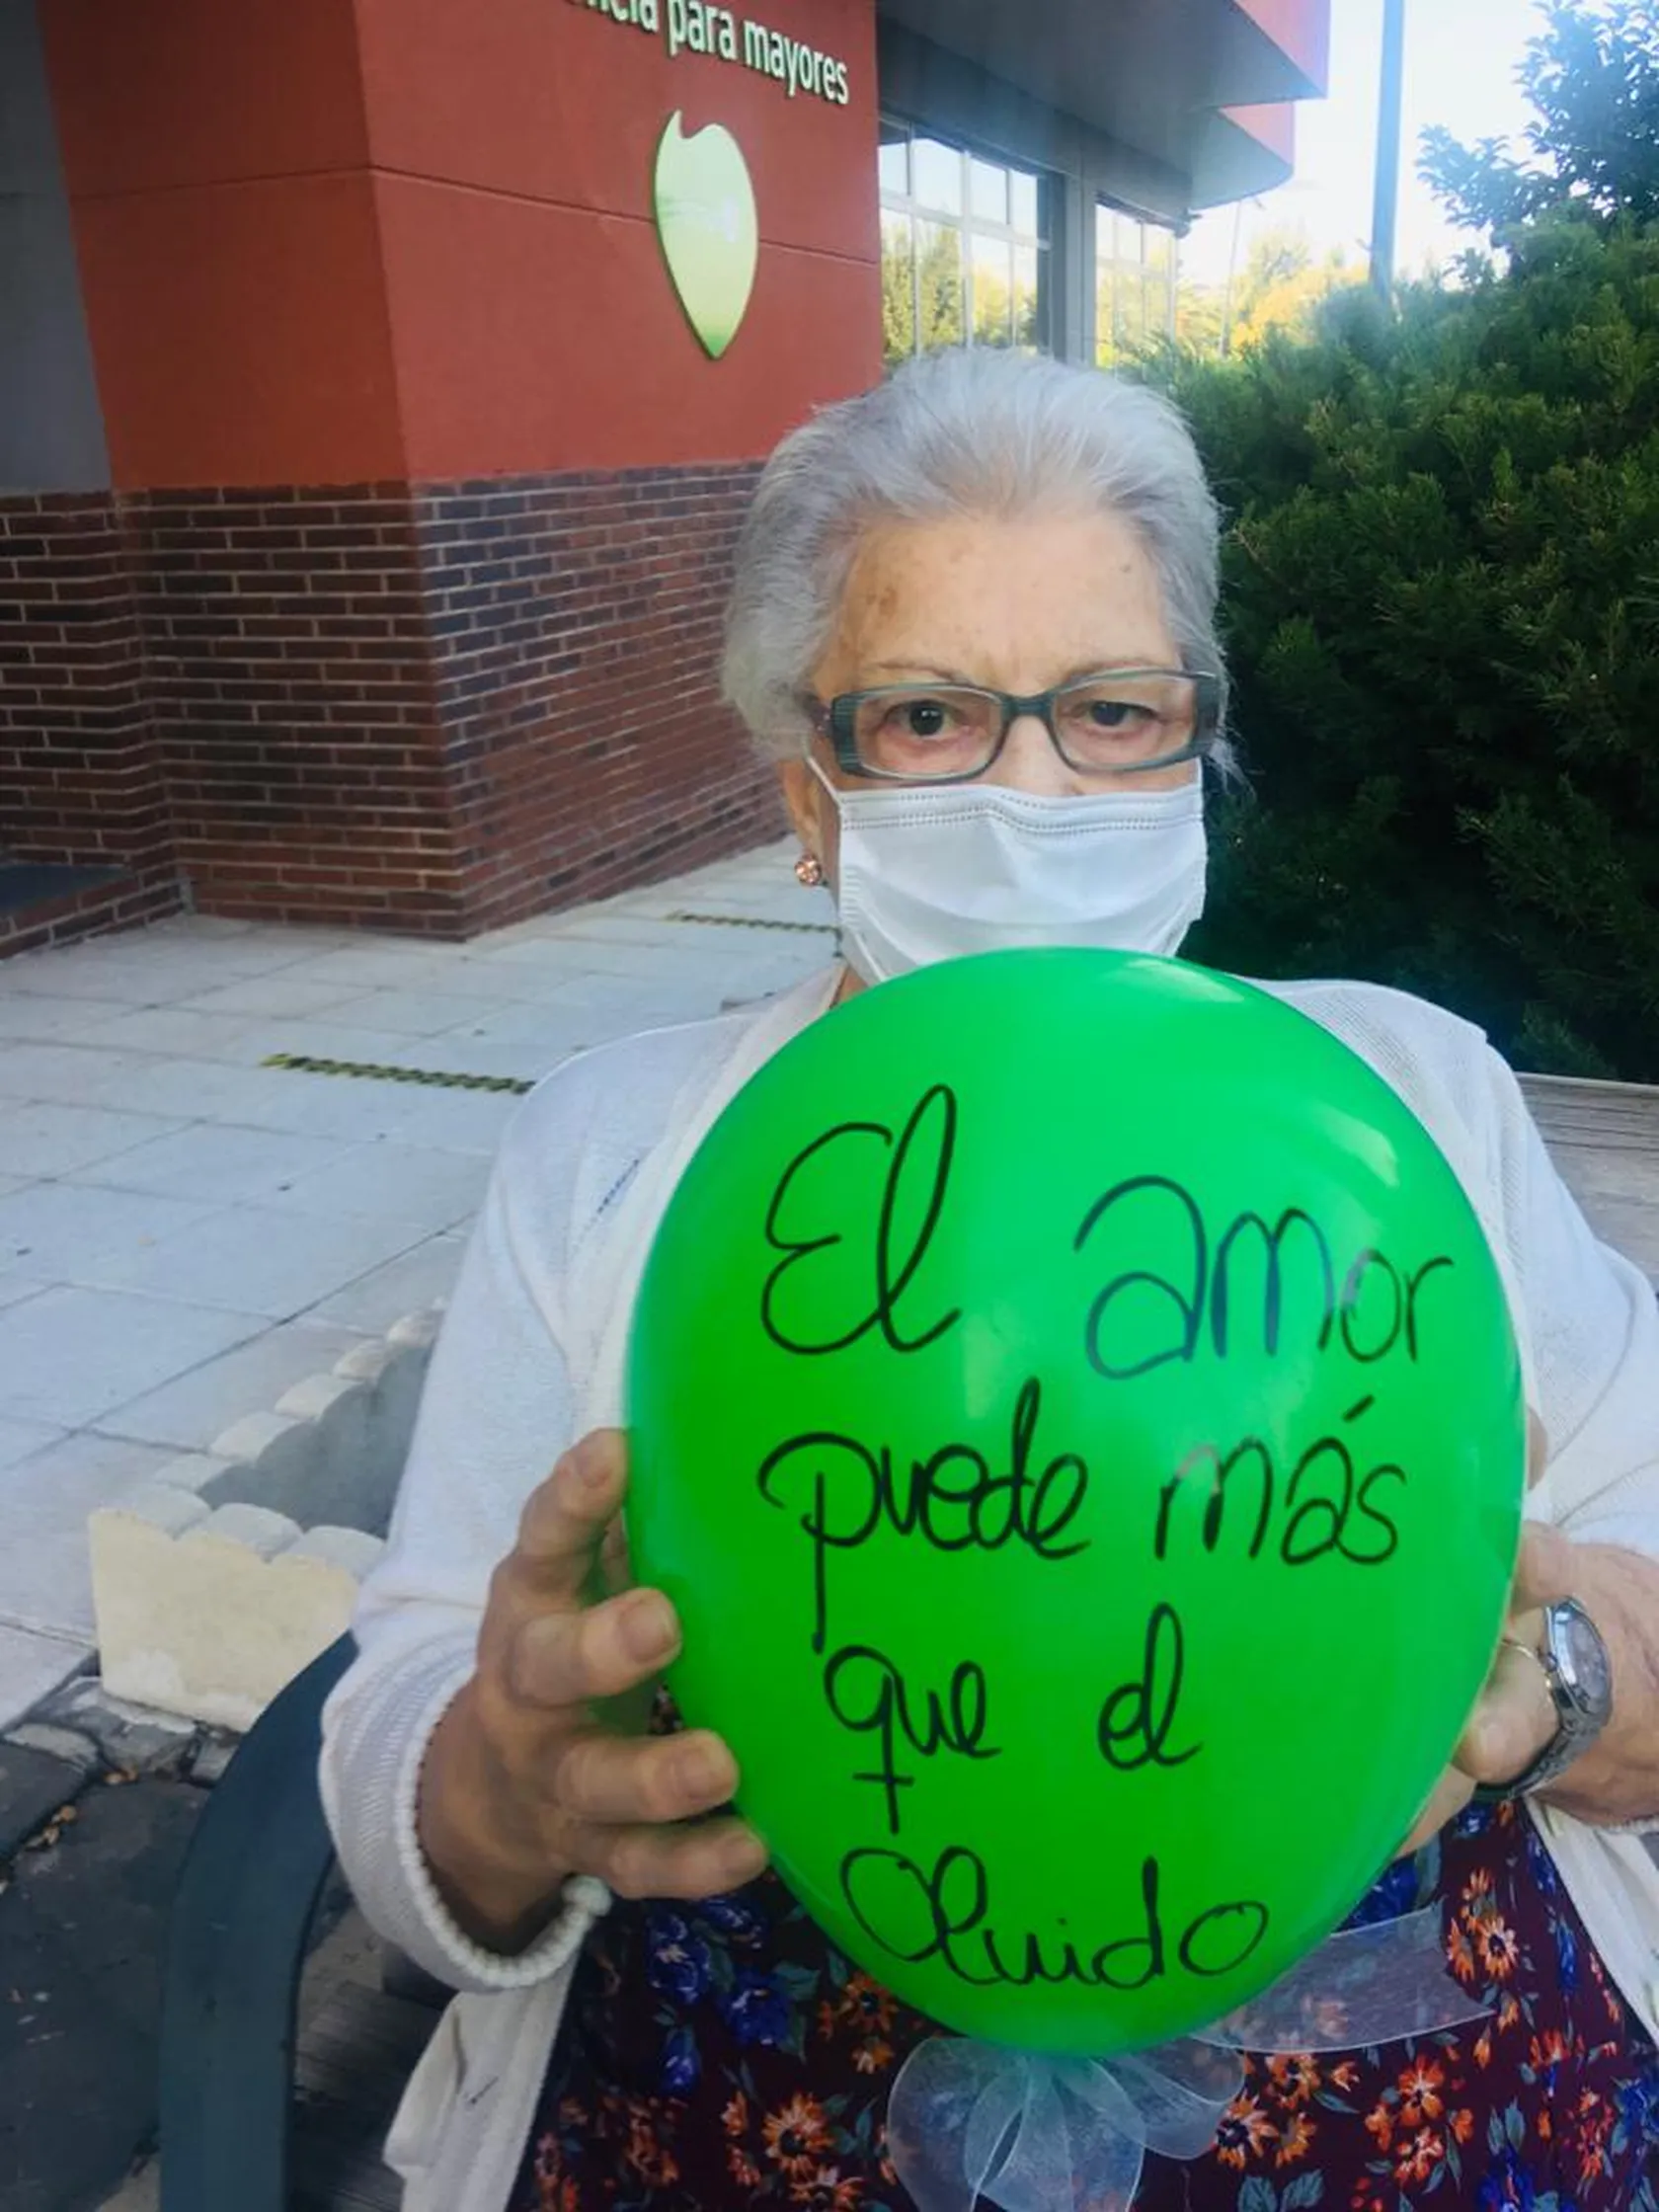 para mayores
El amor
puede más
que el
Olvido